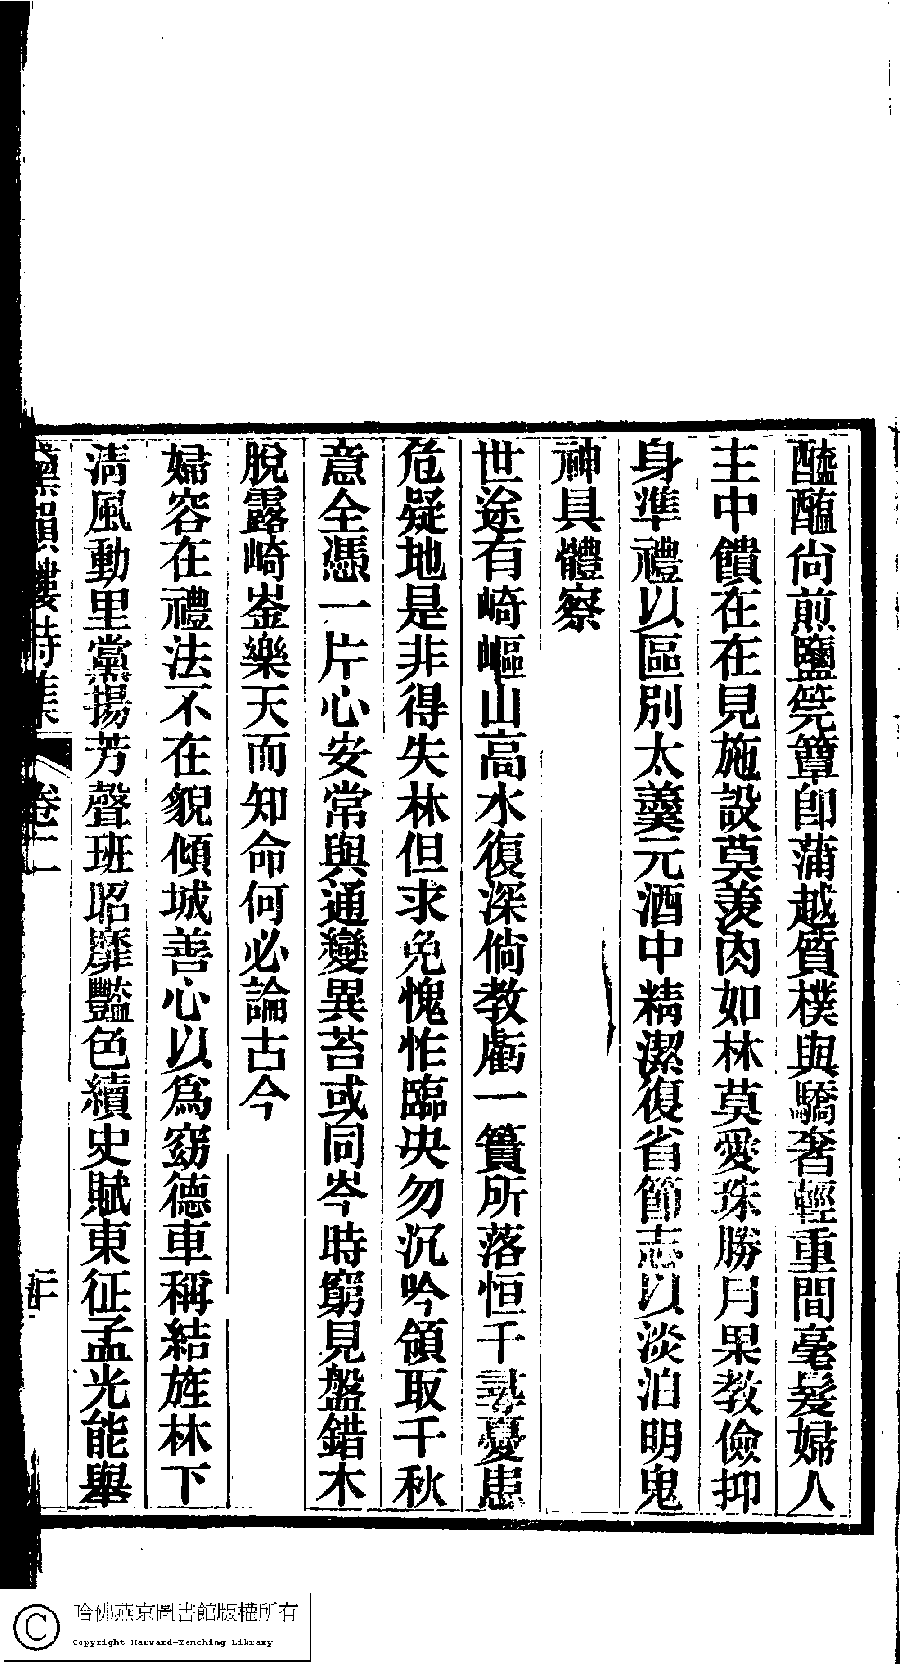 醯醢尚煎鹽筦簟卽蒲越質樸與驕奢輕重間毫髮婦人
主中饋在在見施設莫羨肉如林莫愛珠勝月果教儉抑
身準禮以區別太羹元酒中精潔復省節志以淡泊明鬼
神具體察
世途有崎嶇山高水復深倘教虧一簣所落恒千尋憂患
危疑地是非得失林但求免愧怍臨决勿沉吟領取千秋
意全憑一片心安常與通變異苔或同岑時窮見盤錯木
脫露崎崟樂天而知命何必論古今
婦容在禮法不在貌傾城善心以爲窈德車稱結旌林下
淸風動里黨揚芳聲班昭靡豔色續史賦東征孟光能舉
黛韻樓詩集 卷二
哈佛燕京圖書館版權所有
Copyright Harvard-Yenching Library